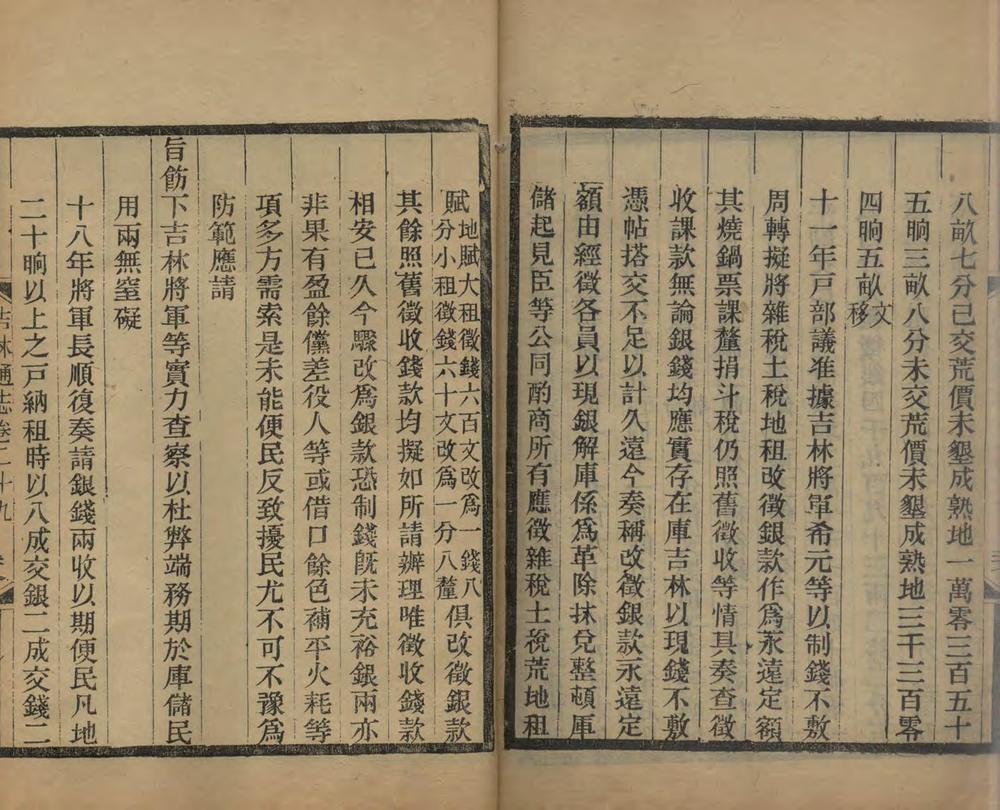 八畝七分已交荒價未墾成熟地一萬零三百五十
五晌三畝八分未交荒價未墾成熟地三千三百零
四晌五畝文移
十一年戶部議准據吉林將軍希元等以制錢不敷
周轉擬將雜稅土稅地租改徵銀款作爲永遠定額
其燒鍋票課釐捐斗稅仍照舊徵收等情具奏查徵
收課款無論銀錢均應實存在庫吉林以現錢不敷
憑帖搭交不足以計久遠今奏稱改徵銀款永遠定
額由經徵各員以現銀解庫係爲革除抹兌整頓庫
儲起見臣等公同酌商所有應徵雜稅土稅荒地租
賦地賦大租徵錢六百文改爲一錢八分小租徵錢六十文改爲一分八釐俱改徵銀款
其餘照舊徵收錢款均擬如所請辦理唯徵收錢款
相安已久今驟改爲銀款恐制錢旣未充裕銀兩亦
非果有盈餘儻差役人等或借口餘色補平火耗等
項多方需索是未能便民反致擾民尤不可不豫爲
防範應請
旨飭下吉林將軍等實力查察以杜弊端務期於庫儲民
用兩無窒礙
十八年將軍長順復奏請銀錢兩收以期便民凡地
二十晌以上之戶納租時以八成交銀二成交錢二
吉林通志卷二十九